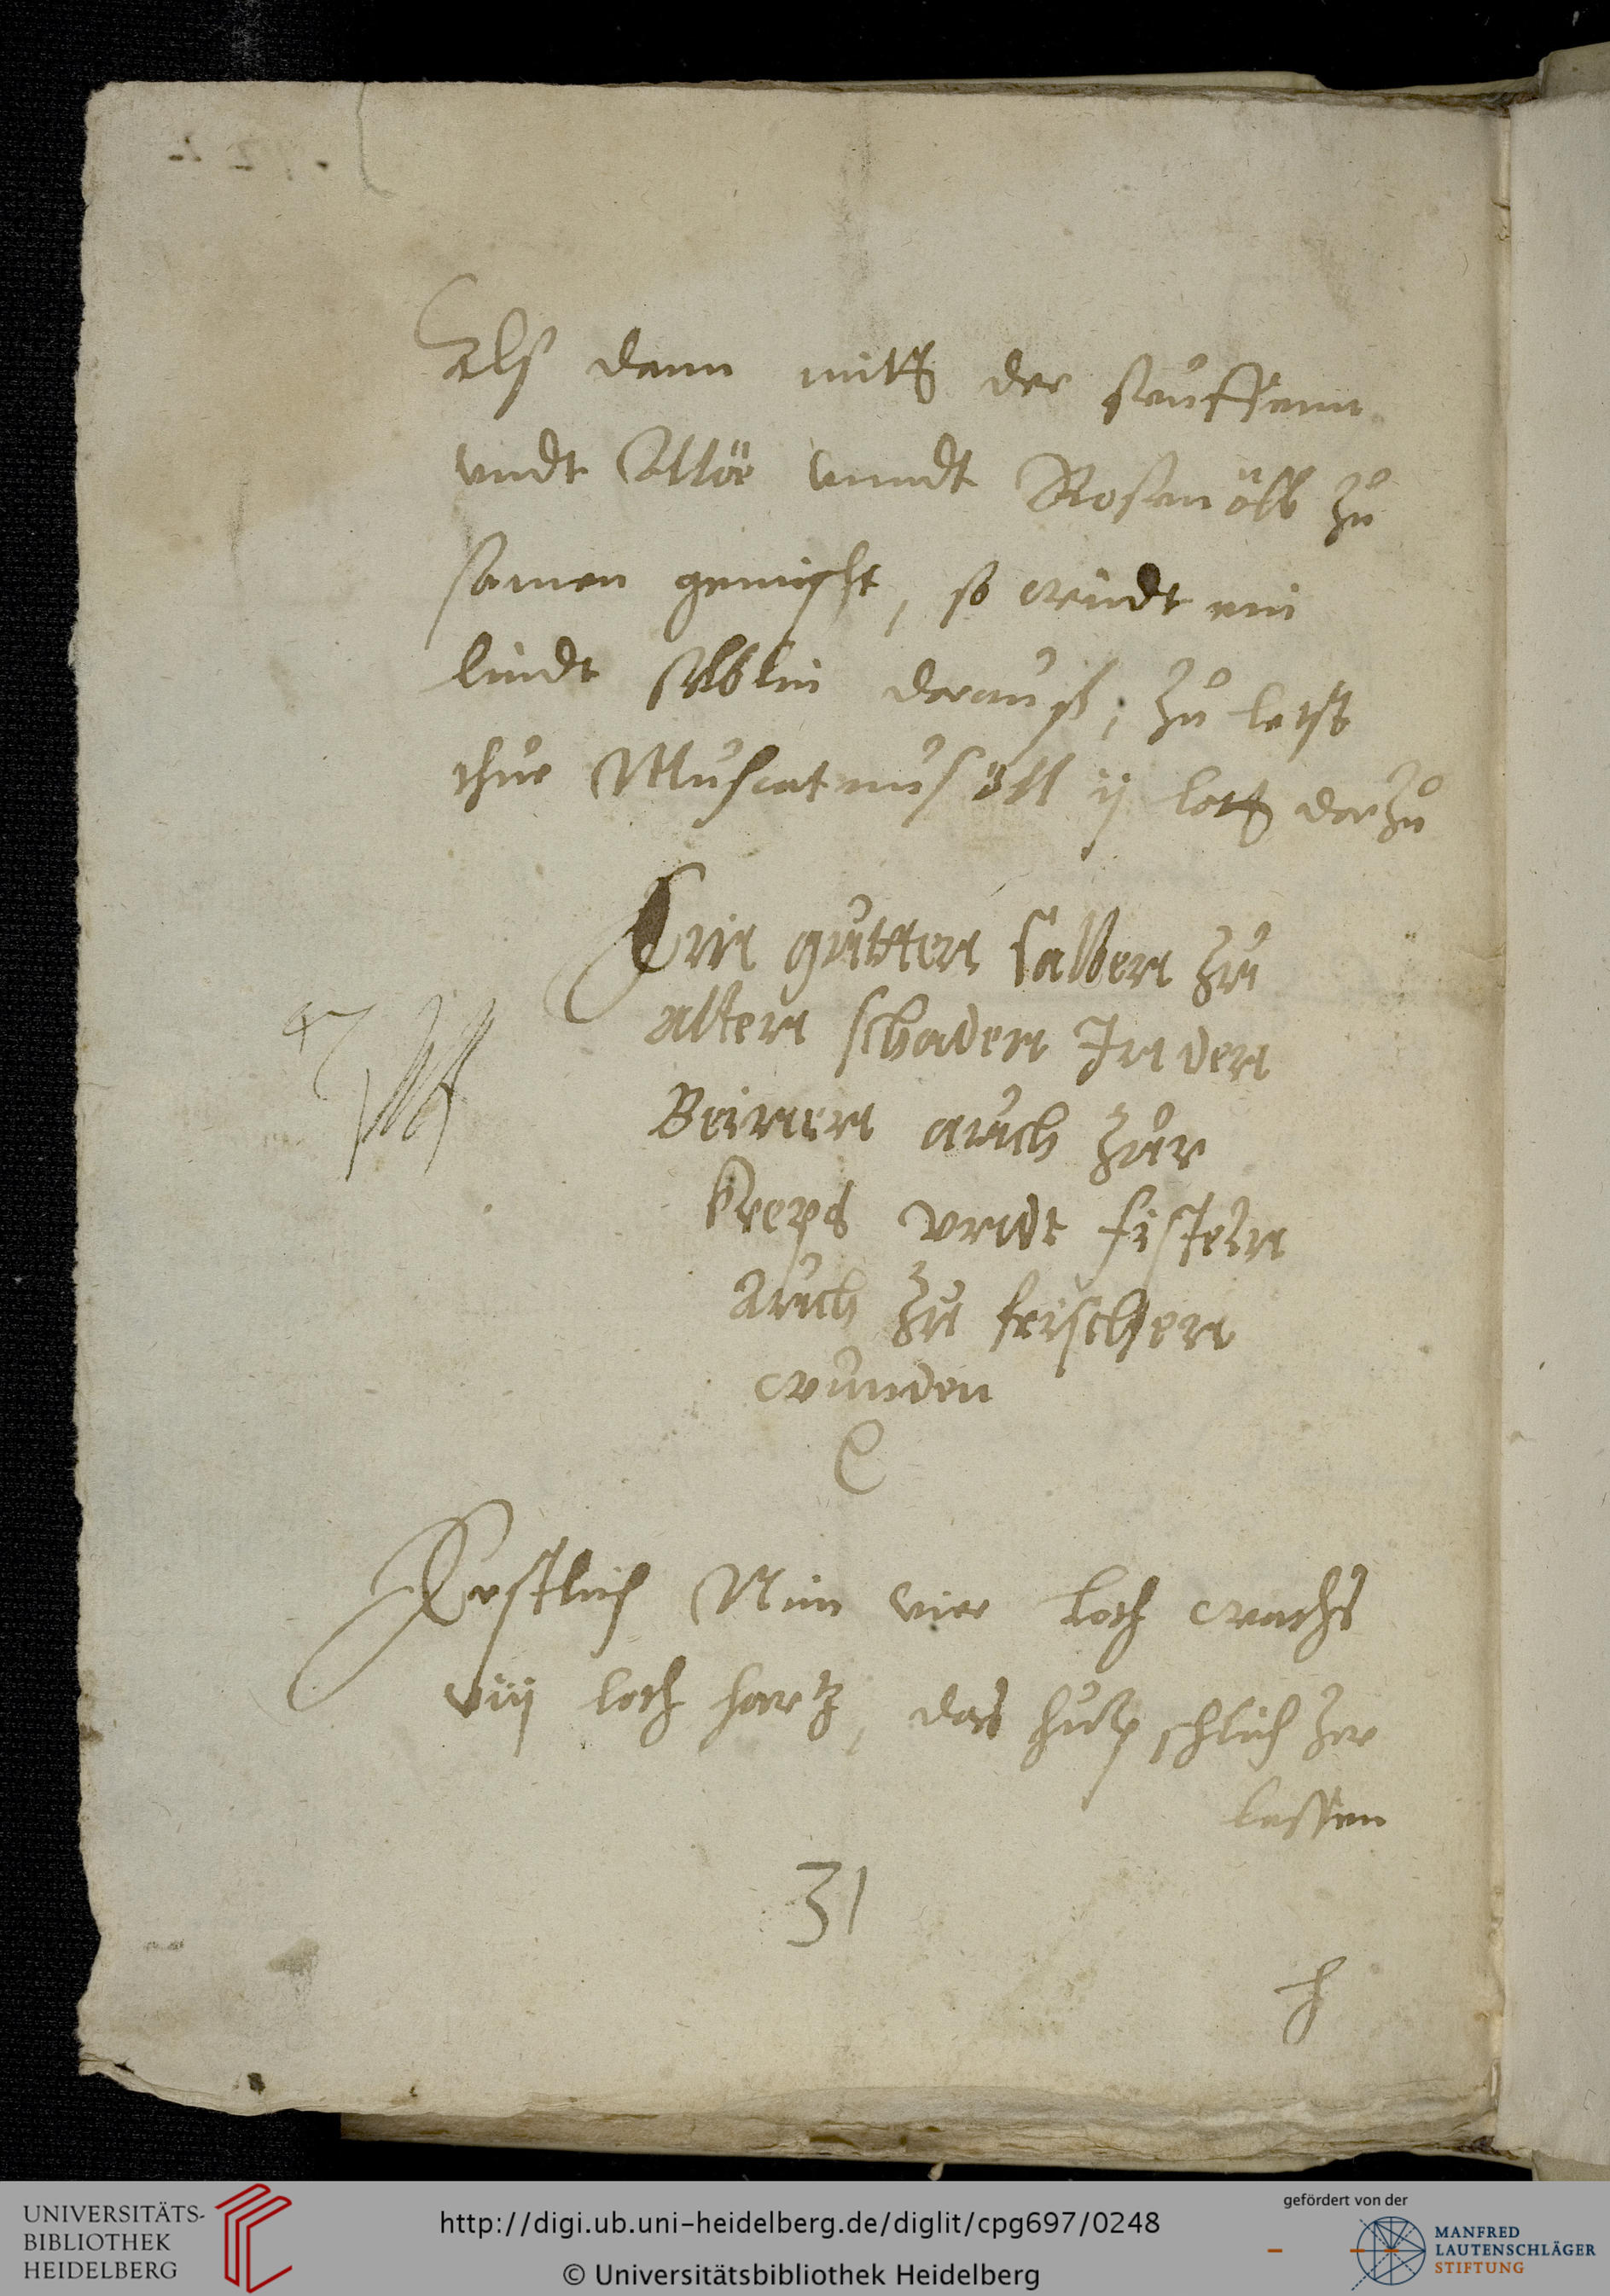 Alß dann mitt der seuffenn
vndt Alloe vnndt Rosenölb zu
samen gemischt, so wirdt ein
lindt selblin darauß, zu letst
thue Muscatnusöll ij lott darzu
Ein gutten salben zu
alten schaden In den
Beinen auch zur
kreps vndt fisteln
auch zu frischen
wunden
Erstlich Nim vier loth wachs
viij loth hartz, das hupschlich zer
lassen
31
h
UNIVERSITÄTS-
BIBLIOTHEK
HEIDELBERG
http://digi.ub.uni-heidelberg.de/diglit/cpg697/0248
© Universitätsbibliothek Heidelberg
gefördert von der
MANFRED
LAUTENSCHLÄGER
STIFTUNG